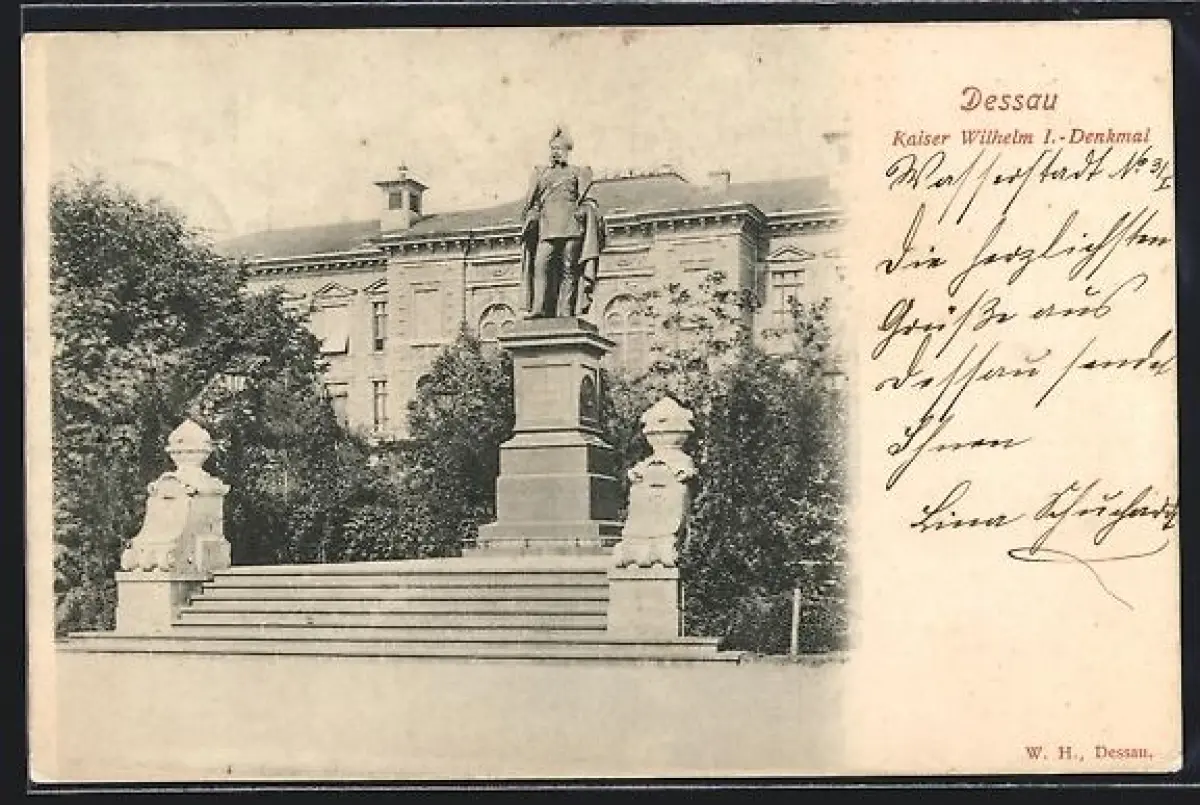 Dessau
Kaiser Wilhelm I.-Denkmal
Wasserstadt No 3/I
Die herzlichsten
Grüße aus
Dessau sendet
Ihnen
Lina Schuchardt
W. H., Dessau.